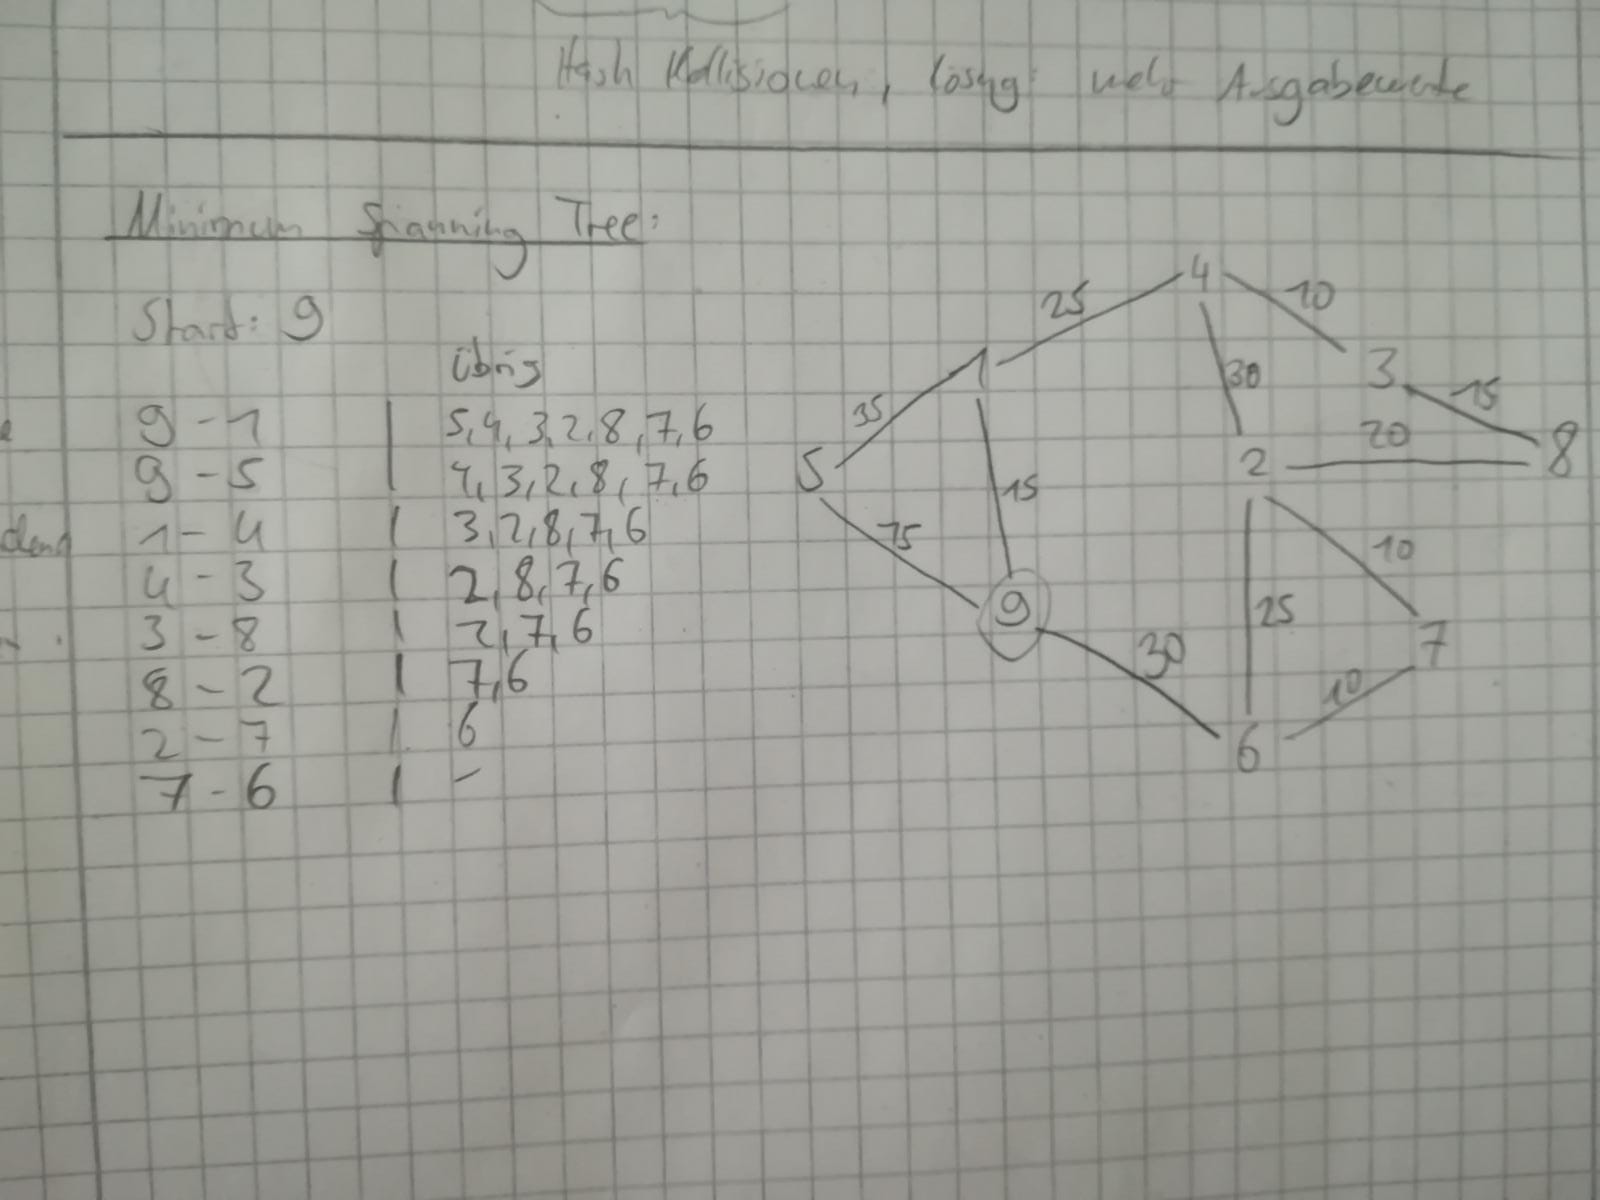 Hash Kollisionen, lösung: mehr Ausgabewerte
Minimum Spanning Tree:
Start: 9
übrig
9 - 1 | 5,4,3,2,8,7,6
9 - 5 | 4,3,2,8,7,6
1 - 4 | 3,2,8,7,6
4 - 3 | 2,8,7,6
3 - 8 | 2,7,6
8 - 2 | 7,6
2 - 7 | 6
7 - 6 | -
4
25
10
1
30
3
35
15
20
5
2
8
15
15
10
9
25
7
30
10
6